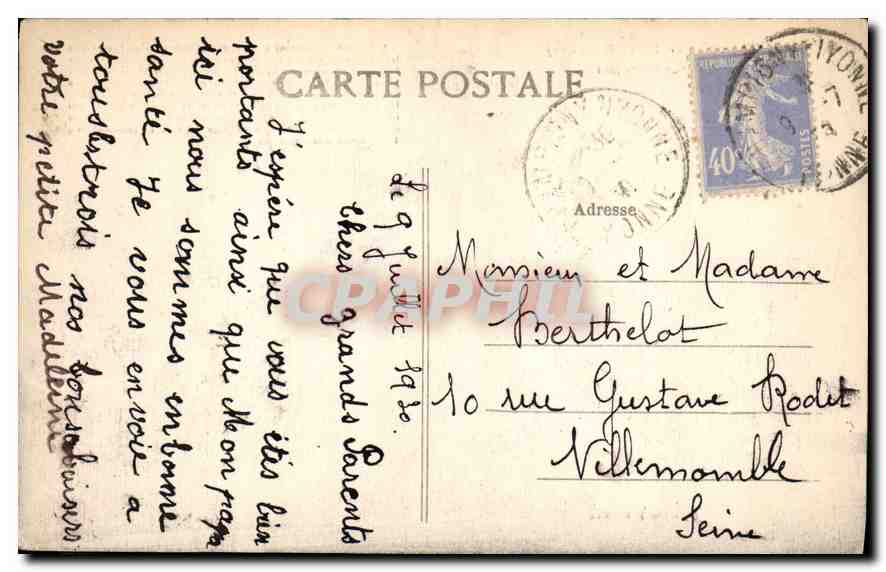 CARTE POSTALE
Le 9 Juillet 1930.
Chers grands Parents
J'espère que vous êtes bien
portants ainsi que Mon papa
ici nous sommes en bonne
santé Je vous envoie a
tous les trois nos bons baisers
votre petite Madeleine
Adresse
Monsieur et Madame
Berthelot
10 rue Gustave Rodet
Villemomble
Seine
40c
POSTES
YONNE
YONNE
CPAPHIL